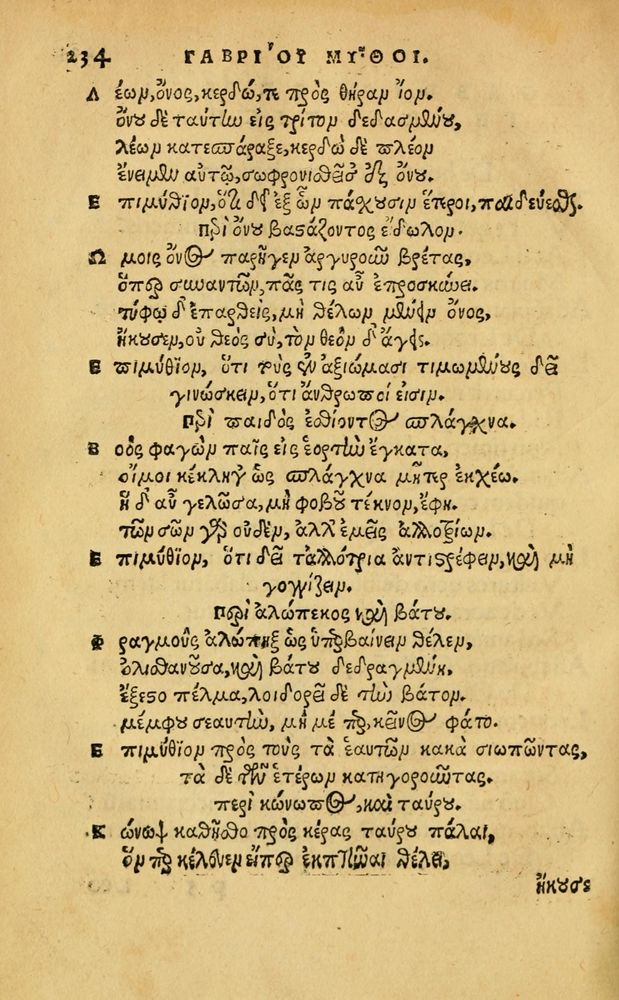 234 ΓΑΒΡΙΟΥ ΜΥΘΟΙ.
Λέων, ὄνος, κερδώ, τε πρὸς θήραν ἴον.
ὄνου δὲ ταύτην εἰς τρίτον δεδασμένου,
λέων κατεσπάραξε, κερδὼ δὲ πλέον
ἔνειμεν αὐτῷ, σωφρονισθεῖσ᾽ ἐξ ὄνου.
Ἐπιμύθιον, ὅτι δεῖ ἐξ ὧν πάσχουσιν ἕτεροι, παιδεύεσθαι.
Περὶ ὄνου βαστάζοντος εἴδωλον.
Ὤμοις ὄνος παρῆγεν ἀργυροῦν βρέτας,
ὅπερ συναντῶν, πᾶς τις αὖ ἐπροσκύνει.
τύφῳ δ᾽ ἐπαρθεὶς, μὴ θέλων μένειν ὄνος,
ἤκουσεν, οὐ θεὸς σὺ, τὸν θεὸν δ᾽ ἄγεις.
Ἐπιμύθιον, ὅτι τοὺς ἐν ἀξιώμασι τιμωμένους δεῖ
γινώσκειν, ὅτι ἄνθρωποί εἰσιν.
Περὶ παιδὸς ἐσθίοντος σπλάγχνα.
Βοὸς φαγὼν παῖς εἰς ἑορτὴν ἔγκατα,
οἴμοι κέκληγ᾽ ὡς σπλάγχνα μῆπερ ἐκχέω.
ἡ δ᾽ αὖ γελῶσα, μὴ φοβοῦ τέκνον, ἔφη.
τῶν σῶν γὰρ οὐδὲν, ἀλλ᾽ ἐμεῖς ἀλλοξίων.
Ἐπιμύθιον, ὅτι δεῖ τἀλλότρια ἀντιστρέφειν, καὶ μὴ
γογγίζειν.
Περὶ ἀλώπεκος καὶ βάτου.
Φραγμοὺς ἀλώπηξ ὡς ὑπερβαίνειν θέλεν,
ὀλισθανοῦσα, καὶ βάτου δεδραγμένη,
ἔξεσο πέλμα, λοιδορεῖ δὲ τὴν βάτον.
μέμφου σεαυτὴν, μὴ μέ περ, κεῖνος φάτο.
Ἐπιμύθιον πρὸς τοὺς τὰ ἑαυτῶν κακὰ σιωπῶντας,
τὰ δὲ τῶν ἑτέρων κατηγοροῦντας.
περὶ κώνωπος, καὶ ταύρου.
Κώνωψ καθῆστο πρὸς κέρας ταύρου πάλαι,
ὃν περ κέλευεν εἴπερ ἐκπτῆναι θέλει,
ἤκουσε